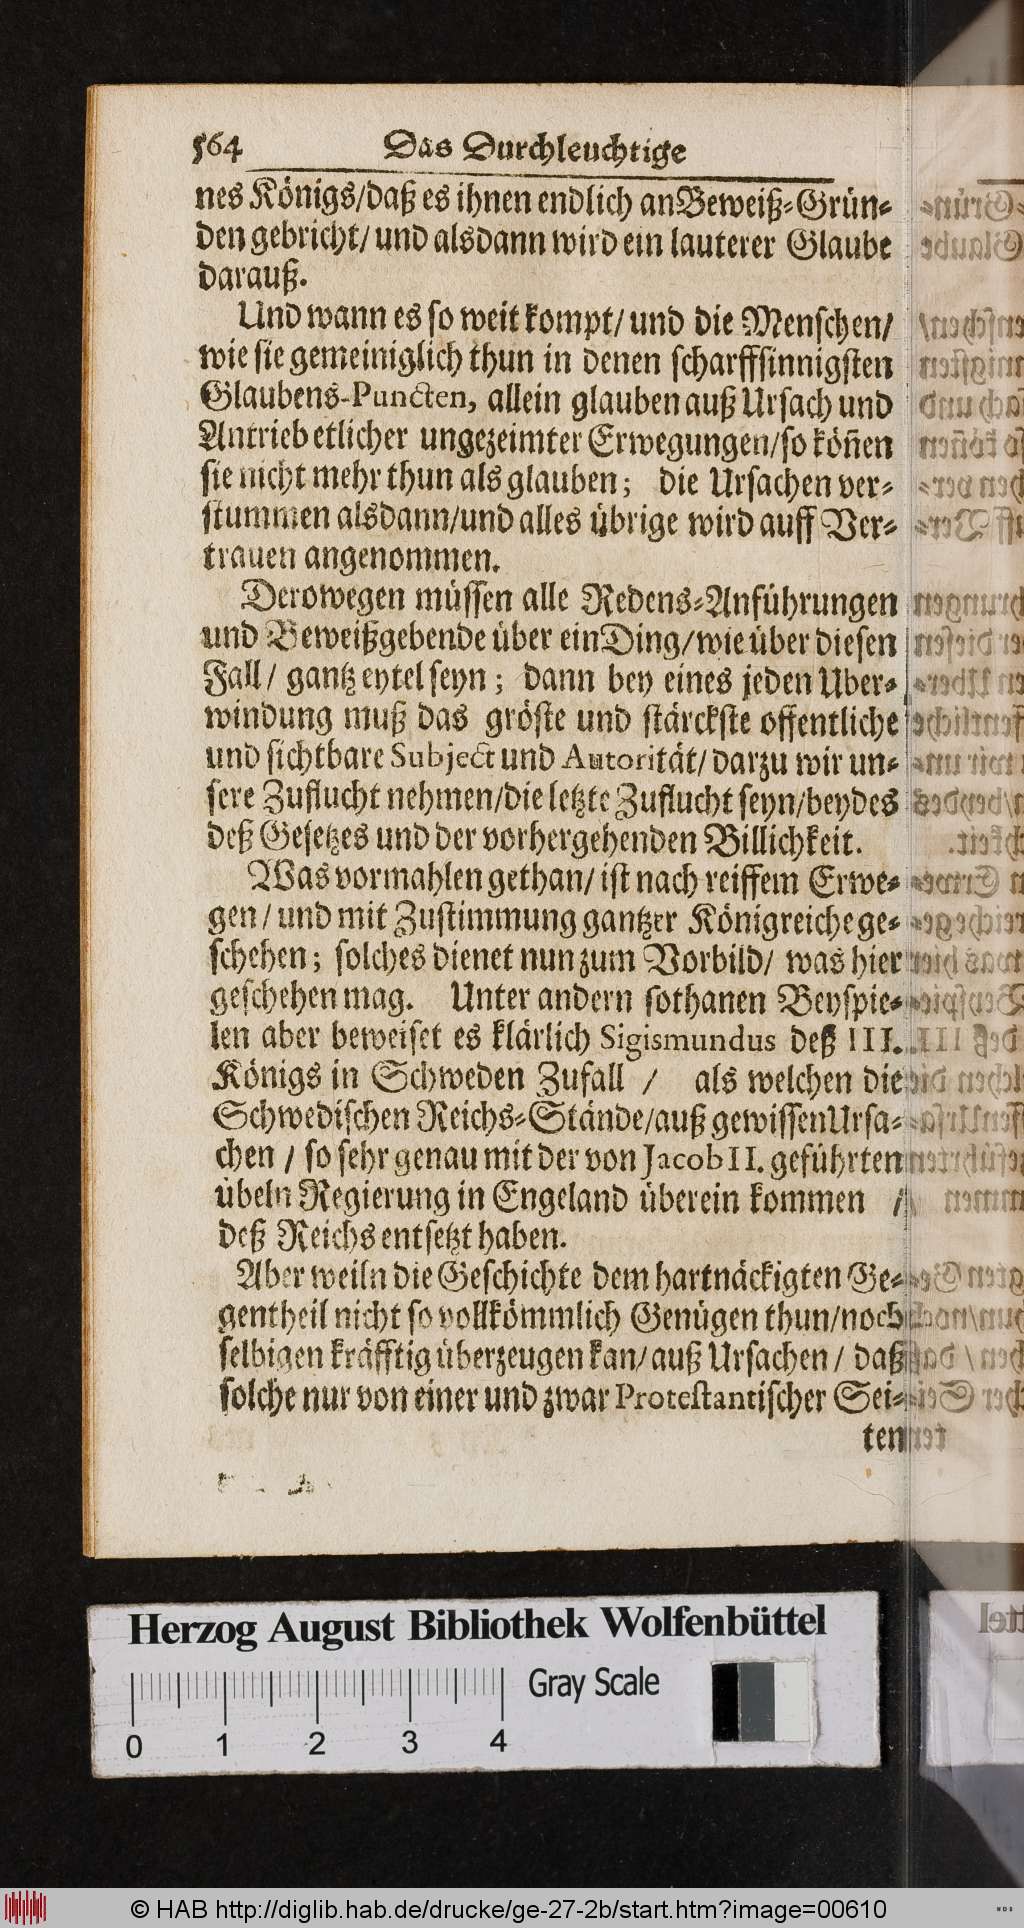 564 Das Durchleuchtige
nes Königs/daß es ihnen endlich an Beweiß-Grün-
den gebricht/ und alsdann wird ein lauterer Glaube
darauß.
Und wann es so weit kompt/ und die Menschen/
wie sie gemeiniglich thun in denen scharffsinnigsten
Glaubens-Puncten, allein glauben auß Ursach und
Antrieb etlicher ungezeimter Erwegungen/so köñen
sie nicht mehr thun als glauben; die Ursachen ver-
stummen alsdann/und alles übrige wird auff Ver-
trauen angenommen.
Derowegen müssen alle Redens-Anführungen
und Beweißgebende über ein Ding/wie über diesen
Fall/ gantz eytel seyn; dann bey eines jeden Uber-
windung muß das gröste und stärckste offentliche
und sichtbare Subject und Autorität/ darzu wir un-
sere Zuflucht nehmen/die letzte Zuflucht seyn/beydes
deß Gesetzes und der vorhergehenden Billichkeit.
Was vormahlen gethan/ ist nach reiffem Erwe-
gen/ und mit Zustimmung gantzer Königreiche ge-
schehen; solches dienet nun zum Vorbild/ was hier
geschehen mag. Unter andern sothanen Beyspie-
len aber beweiset es klärlich Sigismundus deß III.
Königs in Schweden Zufall / als welchen die
Schwedischen Reichs-Stände/auß gewissen Ursa-
chen / so sehr genau mit der von Jacob II. geführten
übeln Regierung in Engeland überein kommen /
deß Reichs entsetzt haben.
Aber weiln die Geschichte dem hartnäckigten Ge-
gentheil nicht so vollkömmlich Genügen thun/noch
selbigen kräfftig überzeugen kan/ auß Ursachen / daß
solche nur von einer und zwar Protestantischer Sei-
ten
Herzog August Bibliothek Wolfenbüttel
Gray Scale
0 1 2 3 4
© HAB http://diglib.hab.de/drucke/ge-27-2b/start.htm?image=00610